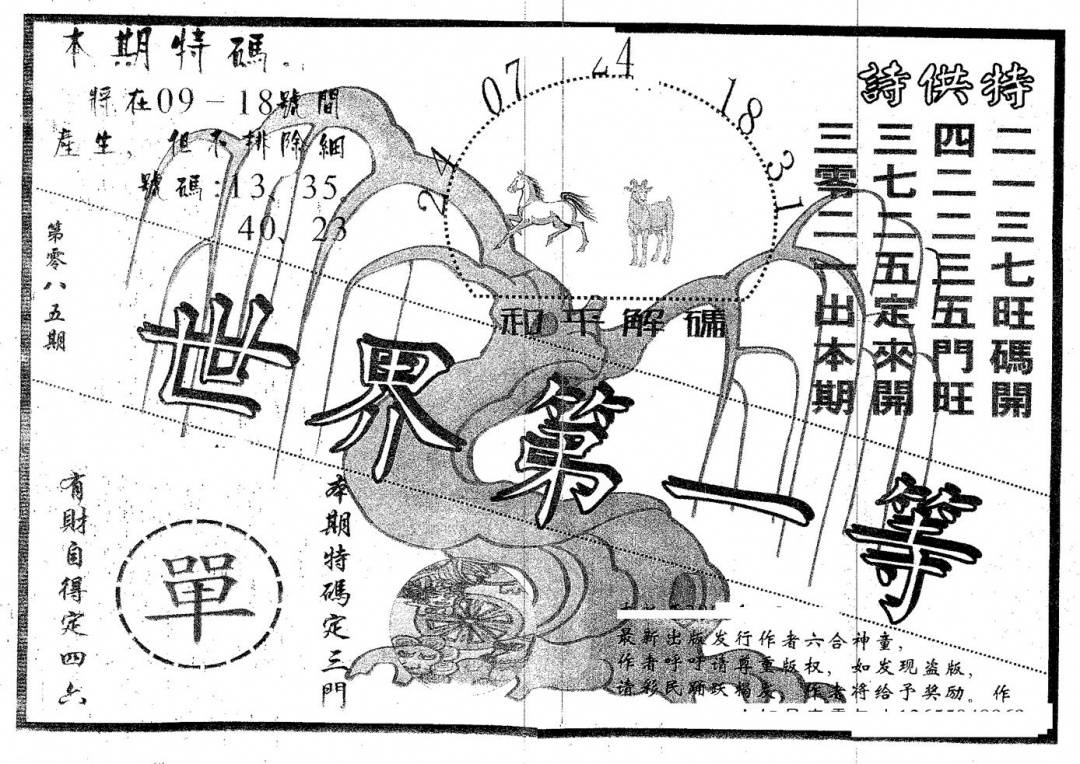 本期特碼。
將在09－18號間
產生，但不排除細
號碼:13、35、
40、23
第零八五期
24
07
24
18
31
和平解碼
特供詩
二一三七旺碼開
四二二三五門旺
三七二五定來開
三零二一出本期
世界第一等
有財自得定四六
單
本期特碼定三門
最新出版发行作者六合神童，
作者呼吁请尊重版权，如发现盗版，
请彩民踊跃揭发，作者将给予奖励。作